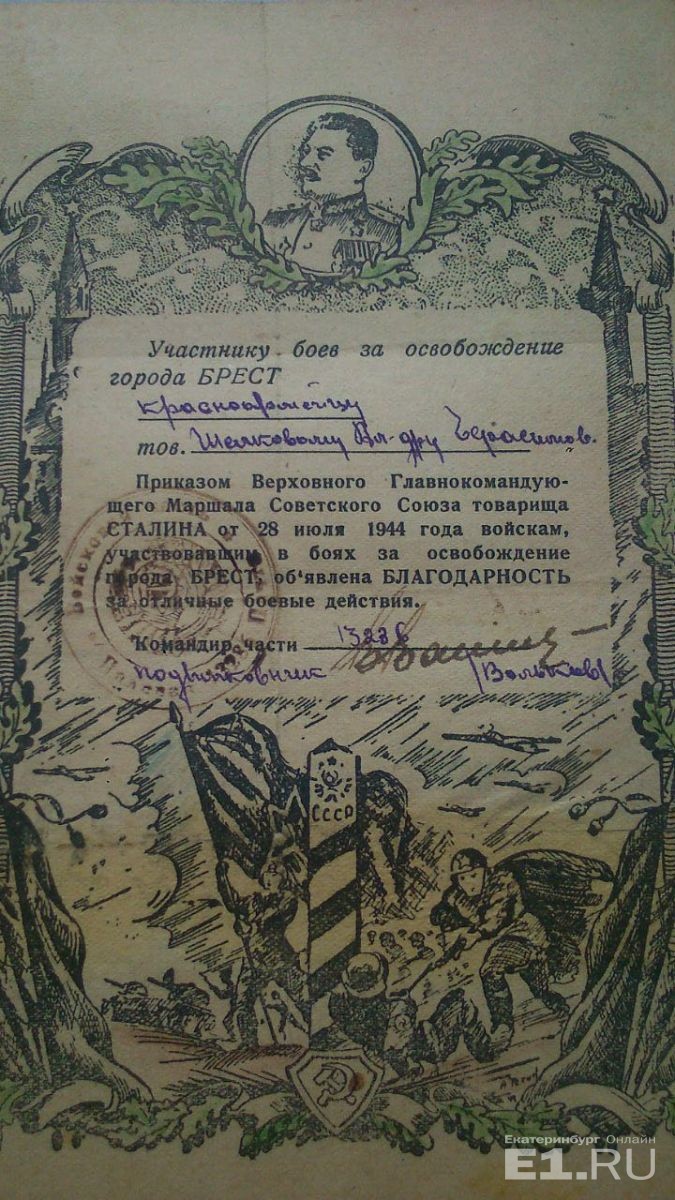 Участнику боев за освобождение
города БРЕСТ
красноармейцу
тов. Шелковому Ал-дру Герасимов.
Приказом Верховного Главнокомандую-
щего Маршала Советского Союза товарища
СТАЛИНА от 28 июля 1944 года войскам,
участвовавшим в боях за освобождение
города БРЕСТ, об'явлена БЛАГОДАРНОСТЬ
за отличные боевые действия.
Командир части
подполковник (Вольков)
СССР
Екатеринбург Онлайн
E1.RU